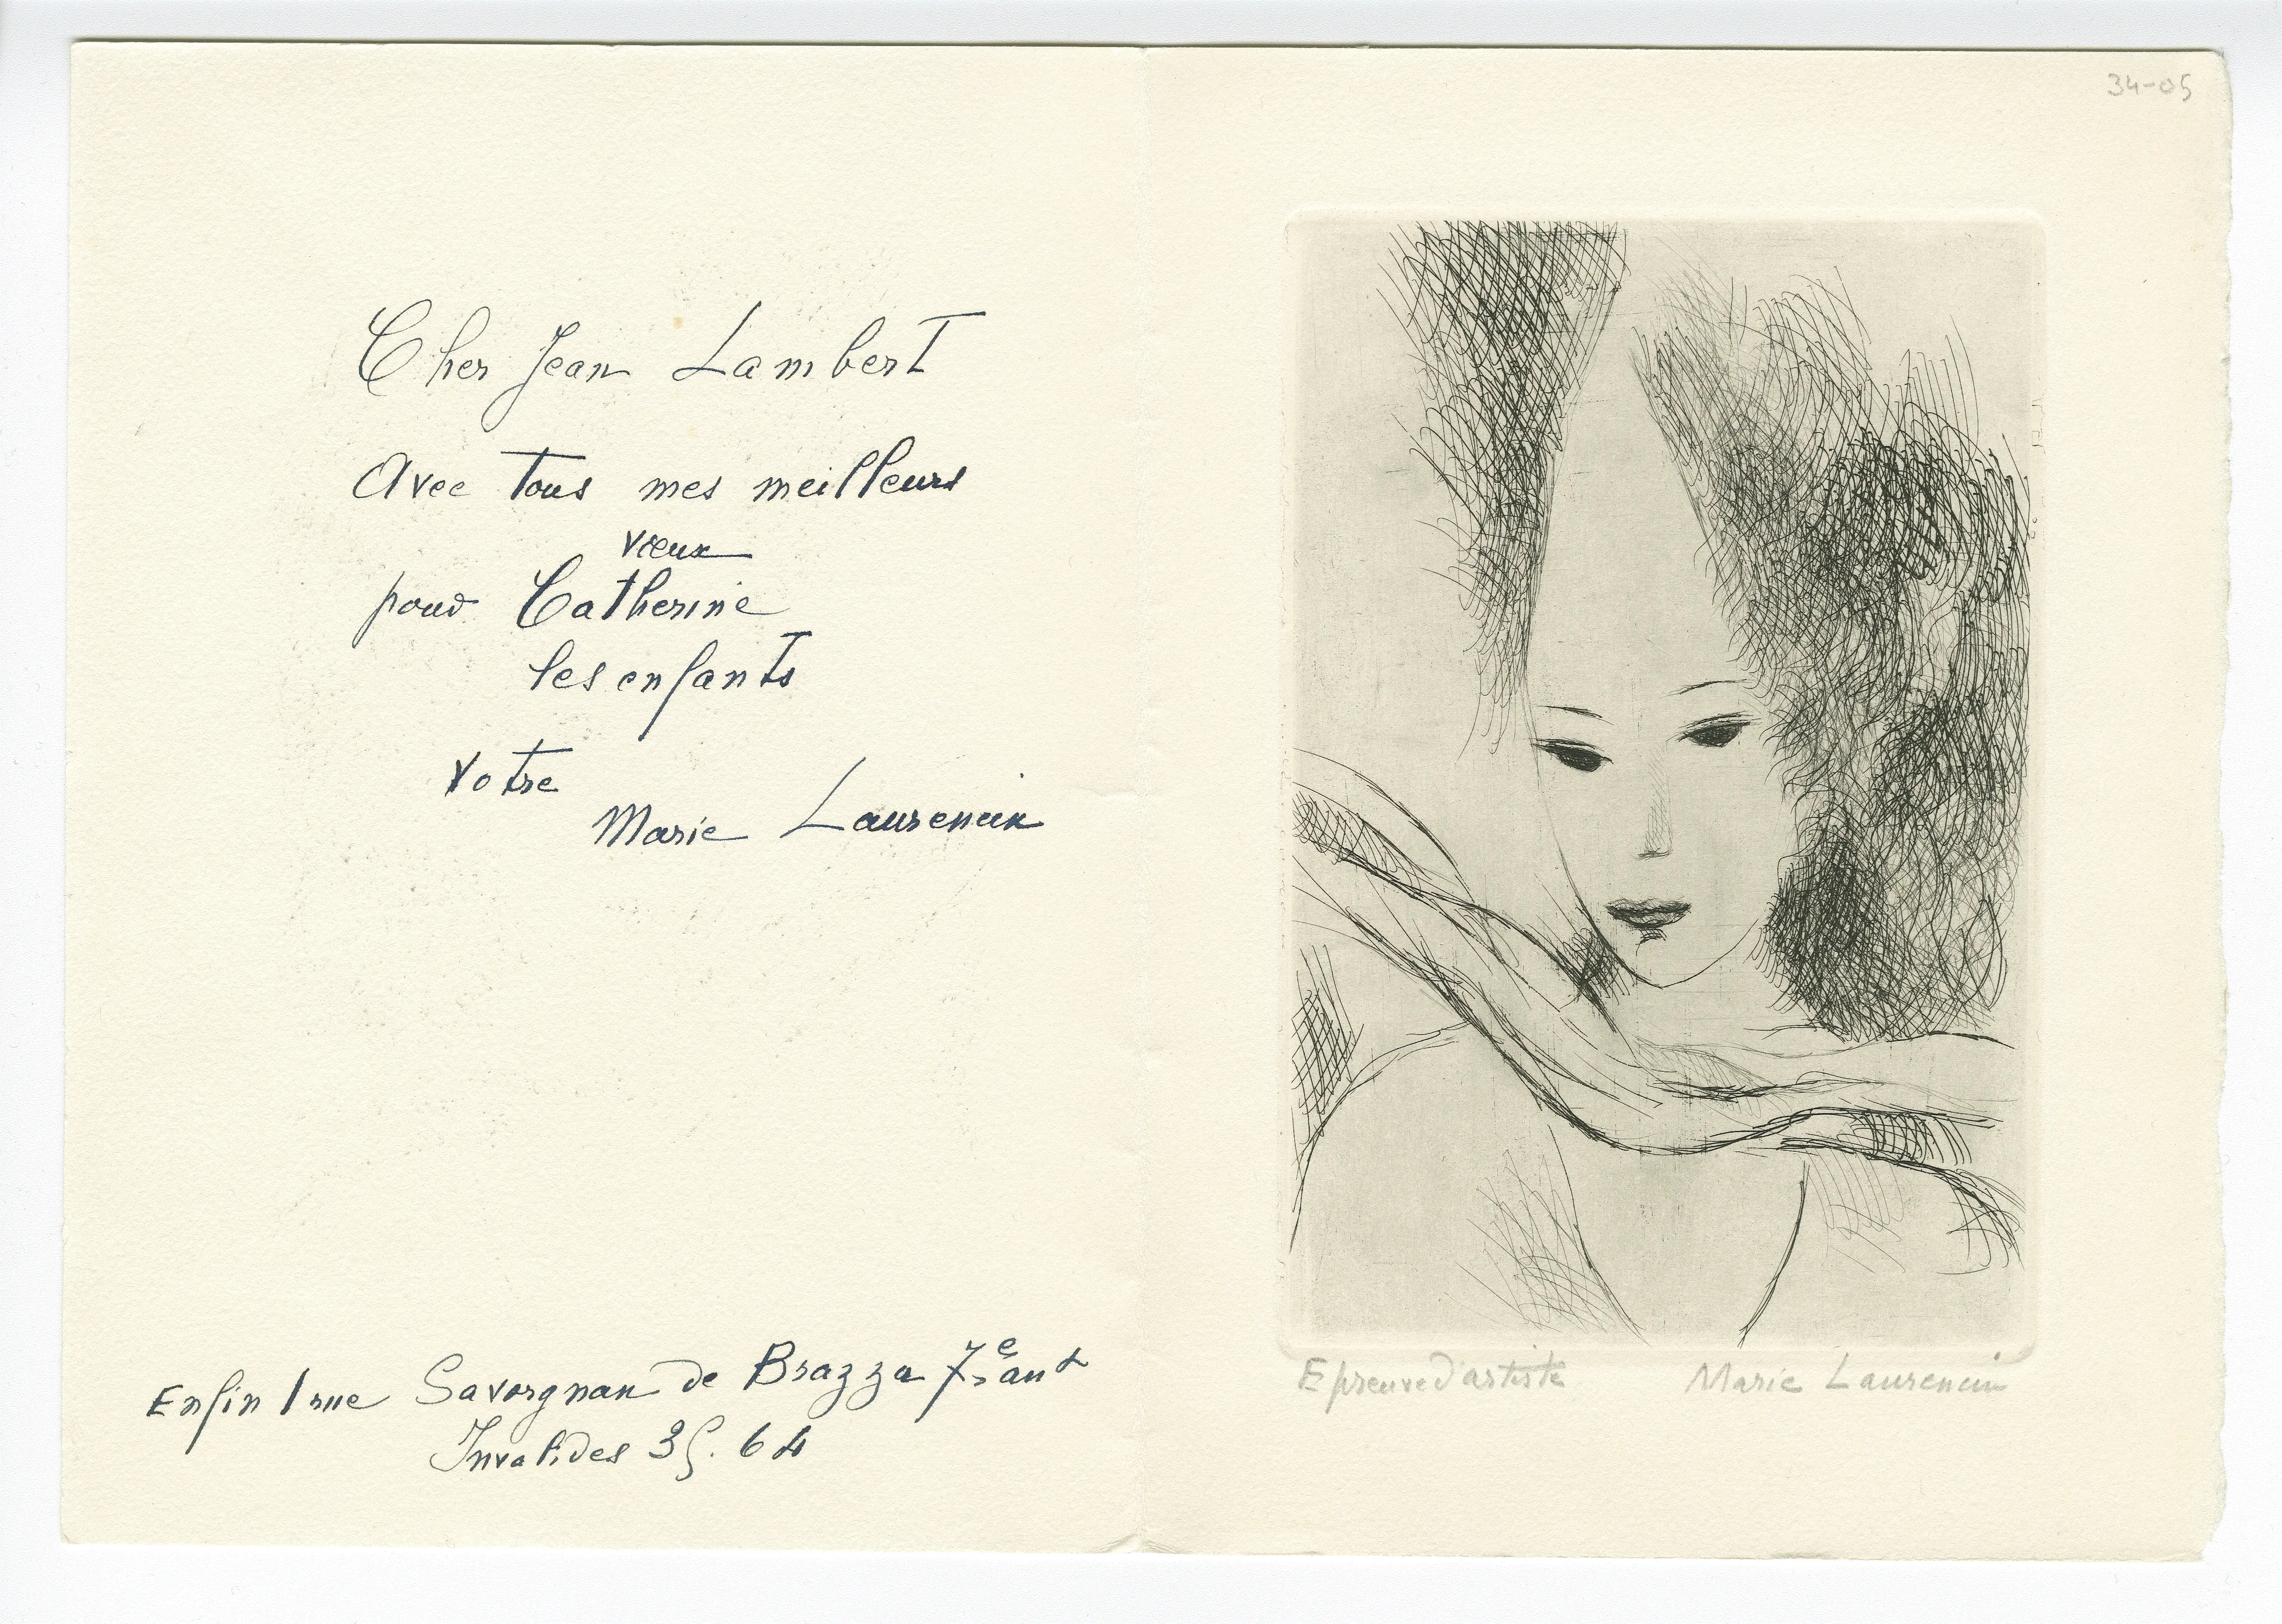 Cher Jean Lambert
Avec tous mes meilleurs
vœux
pour Catherine
les enfants
votre
Marie Laurencin
Enfin 1 rue Savorgnan de Brazza 7e arrt
Invalides 35. 64
34-05
Epreuve d'artiste Marie Laurencin